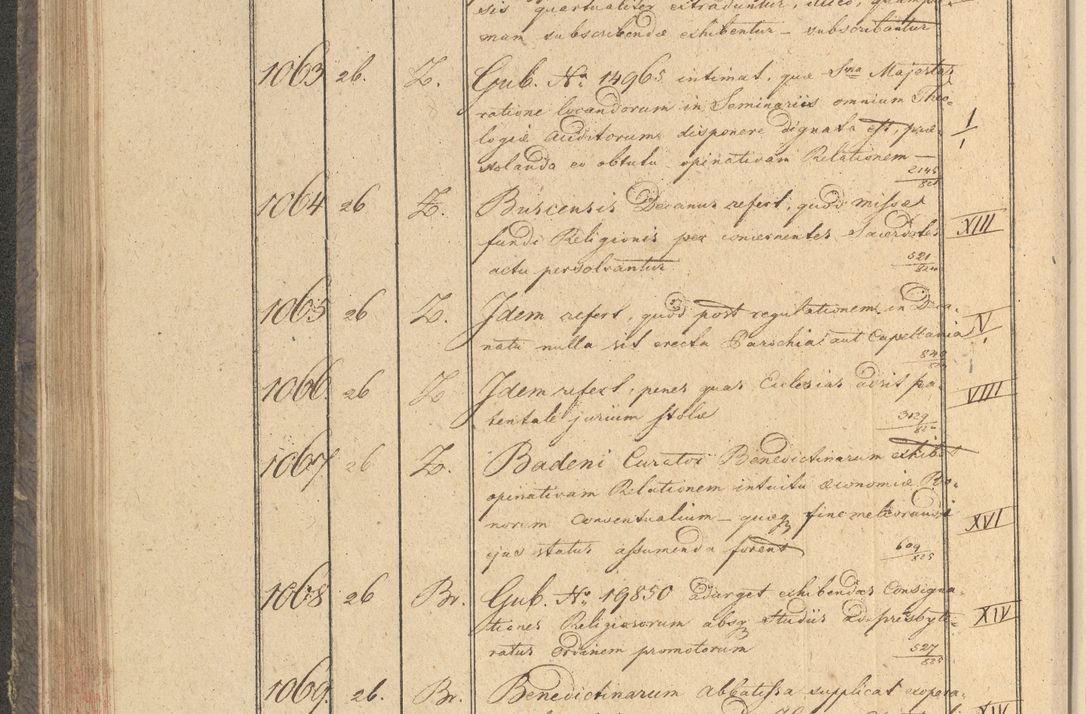 sis quartualiter extraduntur, ideo, quampri-
mam subscribendæ exhibentur – subscribantur
1063 26. Z. Gub. Nº 14965 intimat, quæ Sua Majestas
ratione locandorum in Seminariis omnium Theo-
logiæ Auditorum disponere dignata est, præ- I
stolando eo obtutu opinativam Relationem —
2145
821
1064 26 Z. Buscensis Decanus refert, quod missæ
fundi Religionis per concernentes Sacerdotes XIII
actu persolvantur
521
820
1065 26 Z. Idem refert, quod post regulationem in Deca-
natu nulla sit erecta Parochia aut Capellania V
840
1066. 26 Z. Idem refert, penes quas Ecclesias adsit pa-
tentale jurium stolæ VIII
3129
820
1067 26 Z. Badeni Curator Benedictinarum exhibet
opinativam Relationem intuitu œconomiæ Bo-
norum Conventualium – quæq fine meliorandi XVI
ejus status assumenda forent
609
825
1068 26 Br. Gub. Nº 19850 adurget exhibendas Consigna-
tiones Religiosorum absq Studiis ad presbyte- XIV
ratus Ordinem promotorum
527
825
1069. 26. Br. Benedictinarum Abbatissa supplicat
XIV